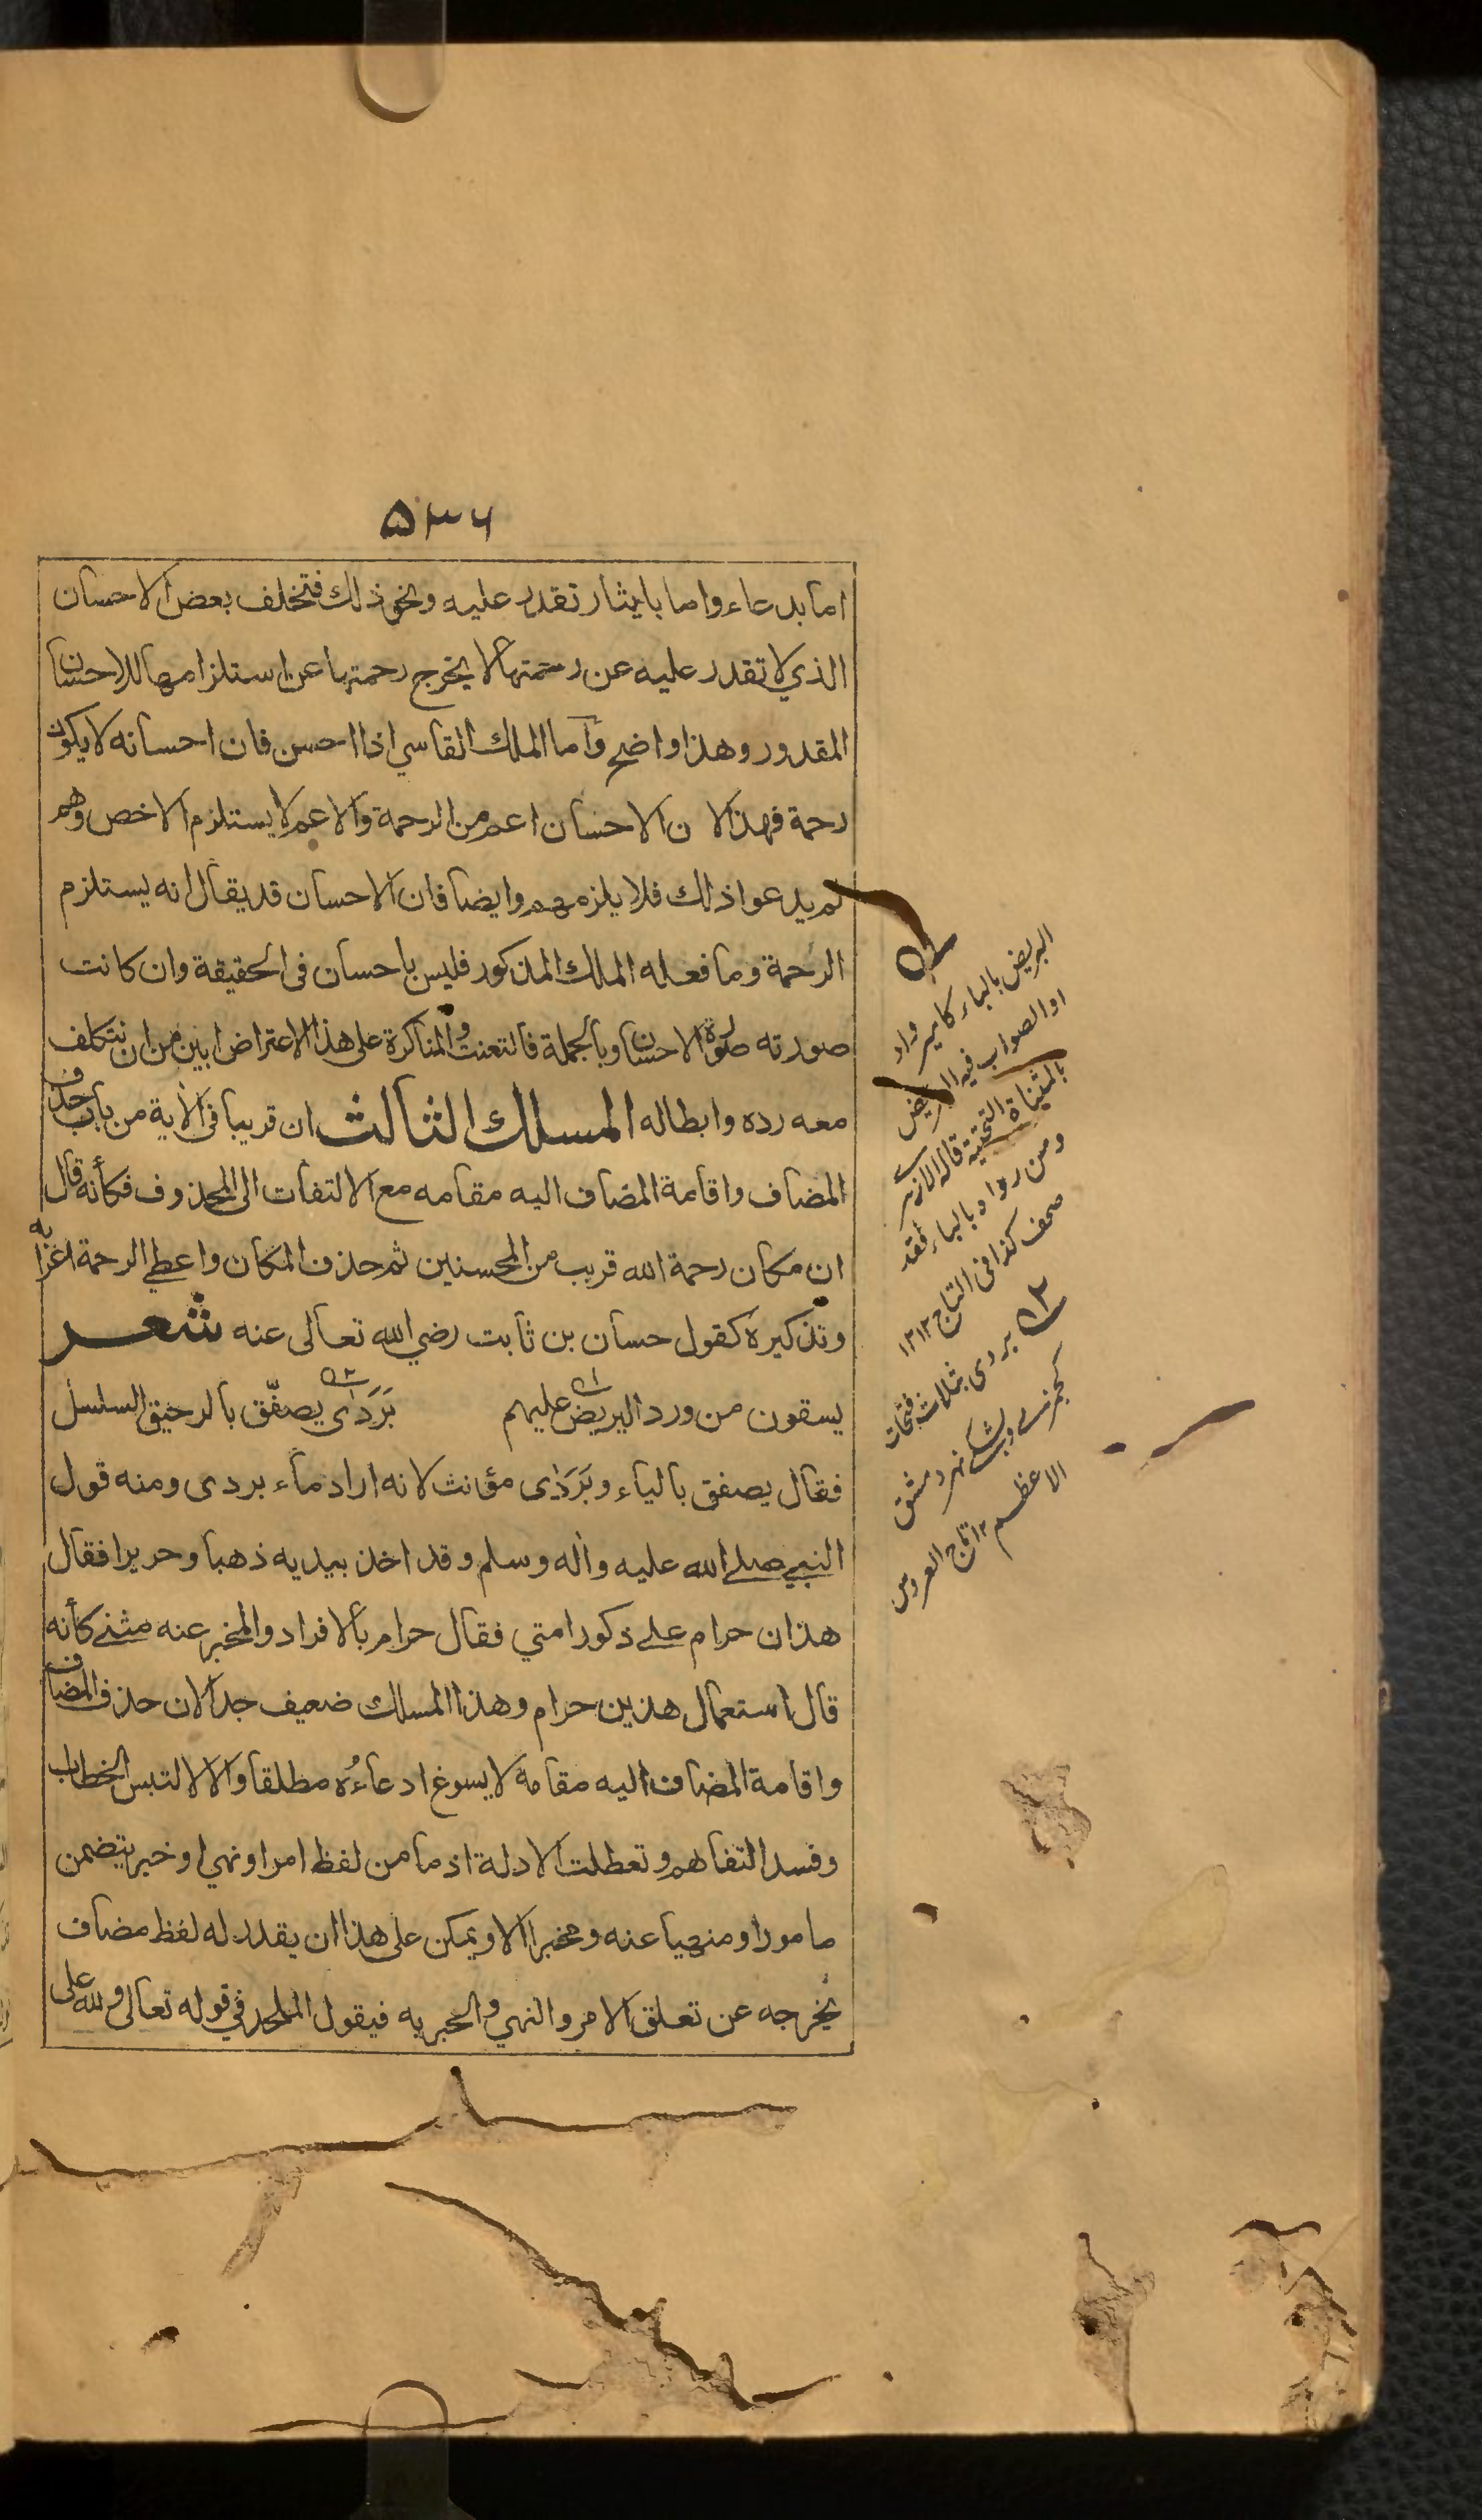 ۵۳۶
اما بدعاء واما بايثار تقدر عليه ونحو ذلك فتخلف بعض الاحسان
الذي لا تقدر عليه عن رحمتها لا يخرج رحمتها عن استلزامها للاحسان
المقدور وهذا واضح وأما الملك القاسي اذا احسن فان احسانه لا يكون
رحمة فهذا لان الاحسان اعم من الرحمة والاعم لا يستلزم الاخص وهم
لم يدعوا ذلك فلا يلزمهم وايضا فان الاحسان قد يقال انه يستلزم
الرحمة وما فعله الملك المذكور فليس باحسان في الحقيقة وان كانت
صورته صورة الاحسان وبالجملة فالتعنت والمناكرة على هذا الاعتراض ابين من ان نتكلف
معه رده وابطاله المسلك الثالث ان قريبا في الأية من باب حذف
المضاف واقامة المضاف اليه مقامه مع الالتفات الى المحذوف فكأنه قال
ان مكان رحمة الله قريب من المحسنين ثم حذف المكان واعطي الرحمة اعرابه
وتذكيره كقول حسان بن ثابت رضي الله تعالى عنه شعر
يسقون من ورد البريض عليهم بَرَدَى يصفّق بالرحيق السلسل
فقال يصفق بالياء وبَرَدَى مؤنث لانه اراد ماء بردى ومنه قول
النبي صلى الله عليه وأله وسلم وقد اخذ بيديه ذهبا وحريرا فقال
هذان حرام على ذكور امتي فقال حرام بالافراد والمخبر عنه مثنى كأنه
قال استعمال هذين حرام وهذا المسلك ضعيف جدا لان حذف المضاف
واقامة المضاف اليه مقامه لا يسوغ ادعاءُه مطلقا والا لالتبس الخطاب
وفسد التفاهم وتعطلت الادلة اذ ما من لفظ امر او نهي او خبر يتضمن
مامورا او منهيا عنه ومخبرا الا ويمكن على هذا ان يقدر له لفظ مضاف
يخرجه عن تعلق الامر والنهي والخبر به فيقول الملحد في قوله تعالى ولله على
البريض بالباء كامير واد
او الصواب فيه اليريض
بالمثناة التحتية قاله الازهري
ومن رواه بالباء فقد
صحف كذا في التاج ۱۲
بردى بثلاث فتحات
كجمزى وبشكى نهر دمشق
الاعظم ۱۲ تاج العروس